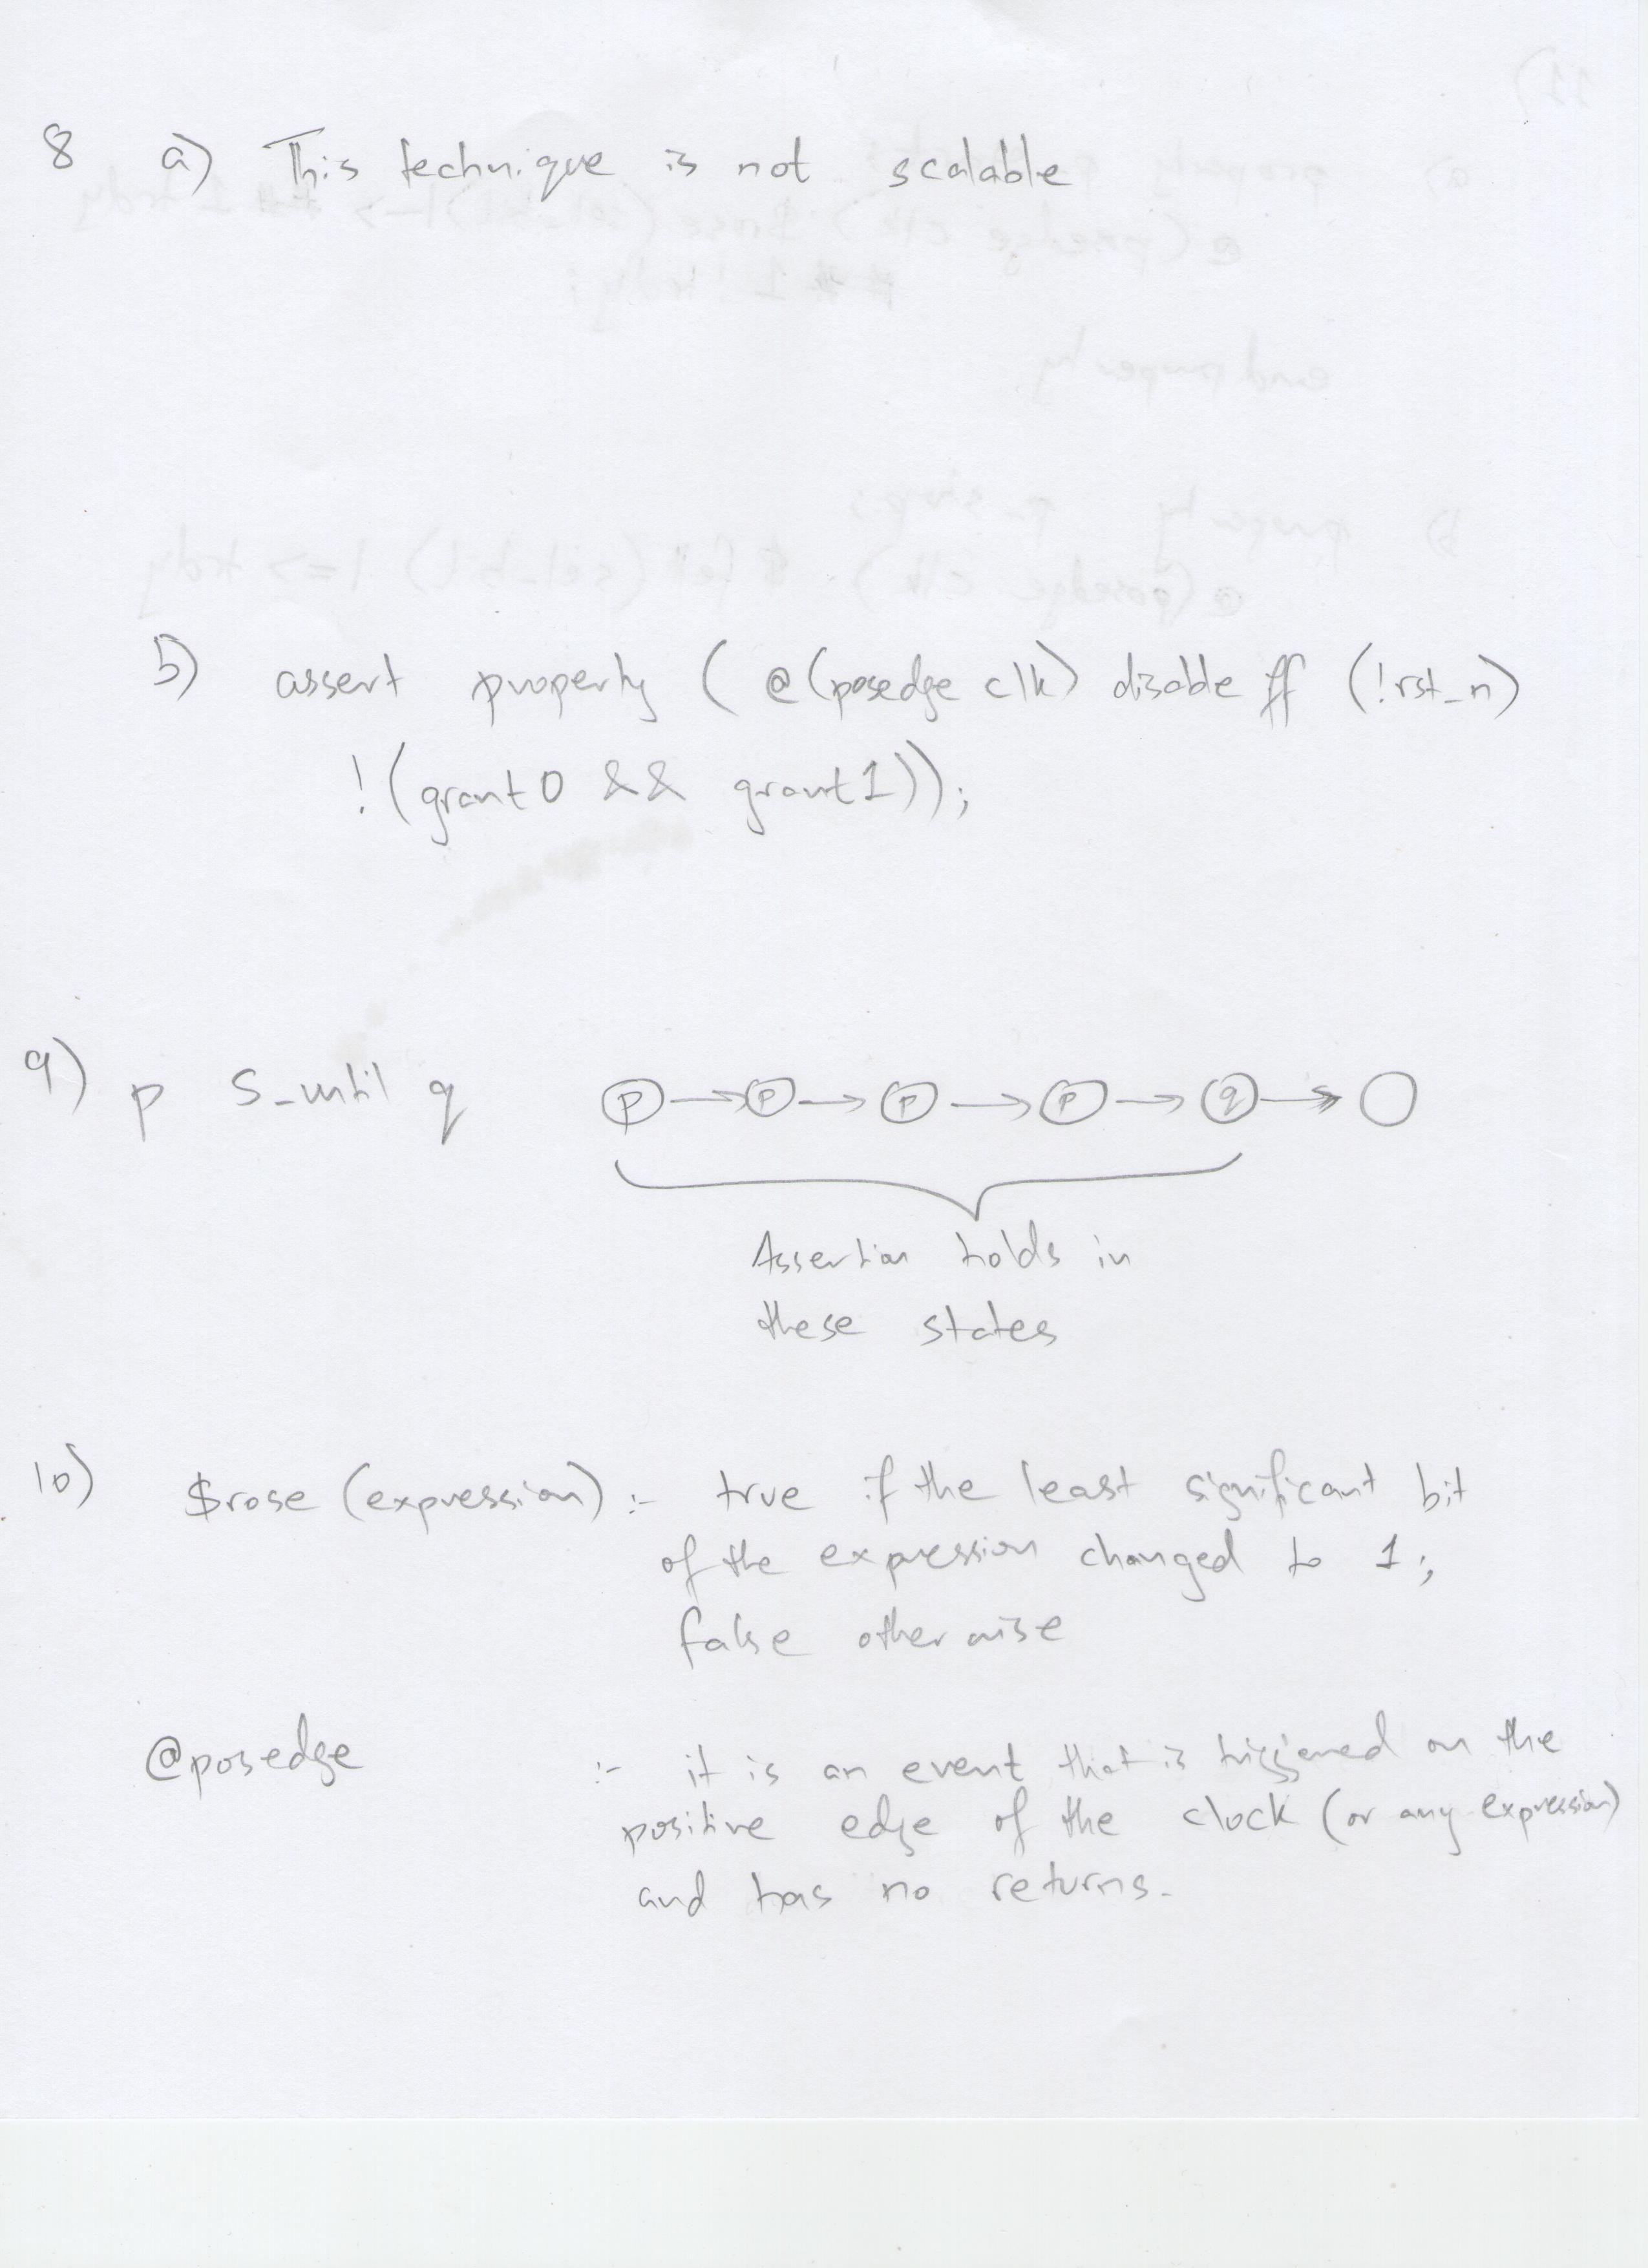 8 a) This technique is not scalable
b) assert property ( @(posedge clk) disable iff (!rst_n)
!(grant0 && grant1));
9) p s_until q p → p → p → p → q →
Assertion holds in
these states
10) $rose (expression) :- true if the least significant bit
of the expression changed to 1;
false otherwise
@posedge :- it is an event that is triggered on the
positive edge of the clock (or any expression)
and has no returns.